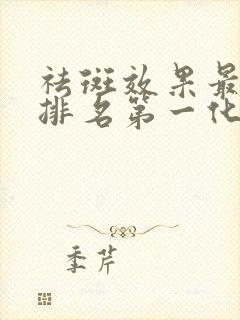 祛斑效果最
排名第一化
季芹